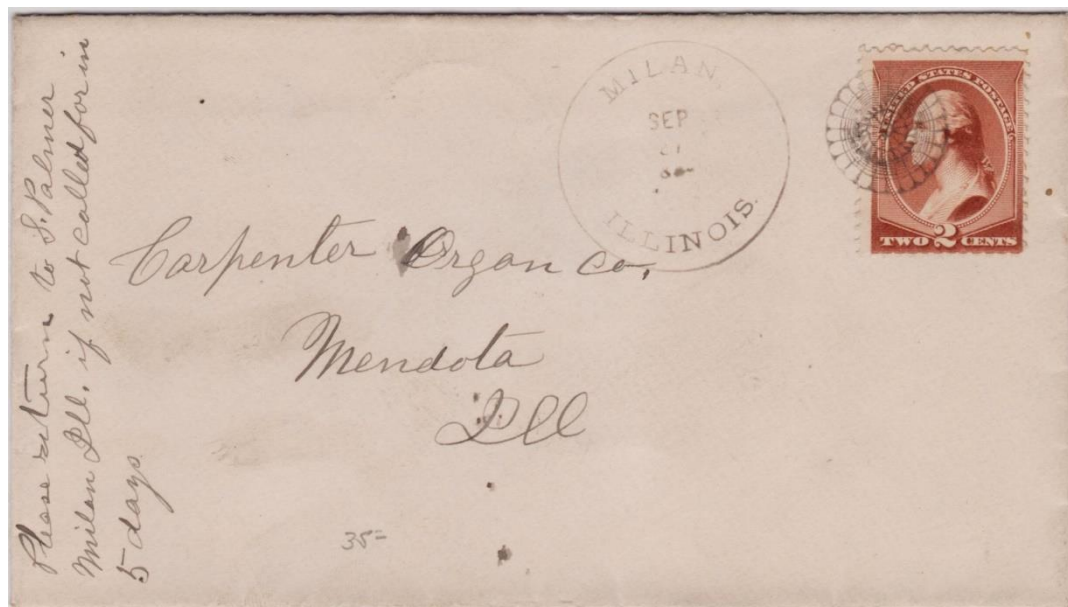 Please return to S. Palmer
Milan Ill. if not called for in
5 days
MILAN,
SEP
ILLINOIS.
UNITED STATES POSTAGE
TWO 2 CENTS
Carpenter Organ Co,
Mendota
Ill
35=